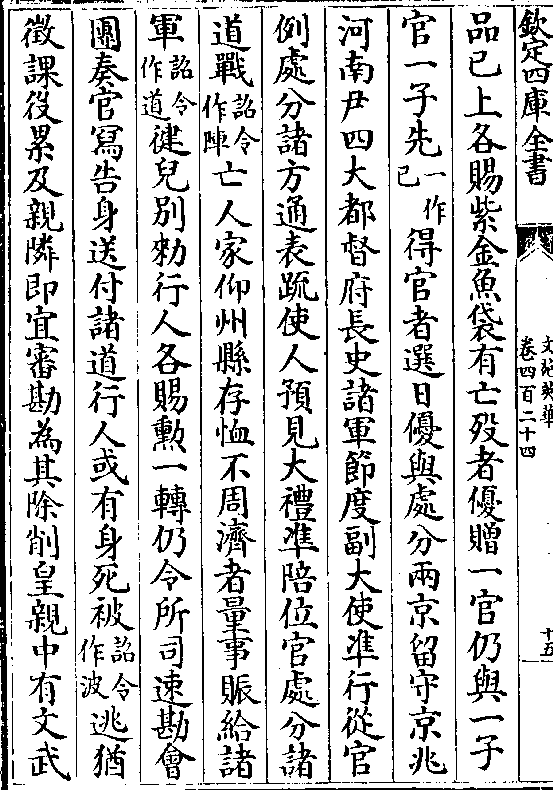 欽定四庫全書
文苑英華
卷四百二十四
十五
品已上各賜紫金魚袋有亡歿者優贈一官仍與一子
官一子先一作已得官者選日優與處分兩京留守京兆
河南尹四大都督府長史諸軍節度副大使準行從官
例處分諸方通表疏使人預見大禮準陪位官處分諸
道戰詔令作陣亡人家仰州縣存恤不周濟者量事賑給諸
軍詔令作道健兒別勑行人各賜勲一轉仍令所司速勘會
團奏官寫告身送付諸道行人或有身死被詔令作波逃猶
徵課役累及親隣即宜審勘為其除削皇親中有文武